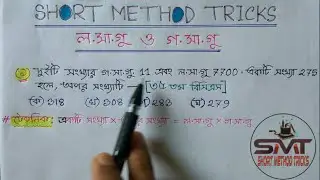 SHORT METHOD TRICKS
ল.সা.গু ও গ.সা.গু
দুইটি সংখ্যার গ.সা.গু. 11 এবং ল.সা.গু 7700. একটি সংখ্যা 275
হলে, অপর সংখ্যাটি [৩৫ তম বিসিএস]
(ক) 318 (খ) 308 283 (ঘ) 279
একটি সংখ্যা × সংখ্যা = ল.সা.গু × গ.সা.গু
SMT
SHORT METHOD TRICKS